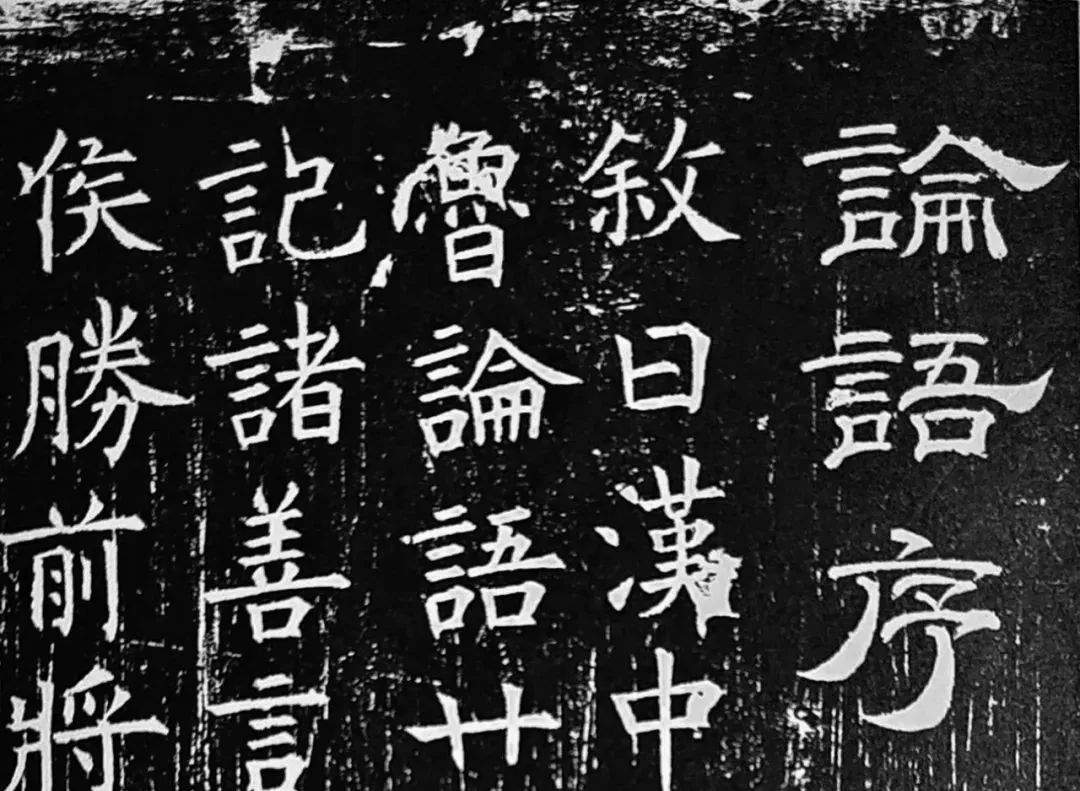 論語序
敘曰漢中
魯論語廿
記諸善言
侯勝前將